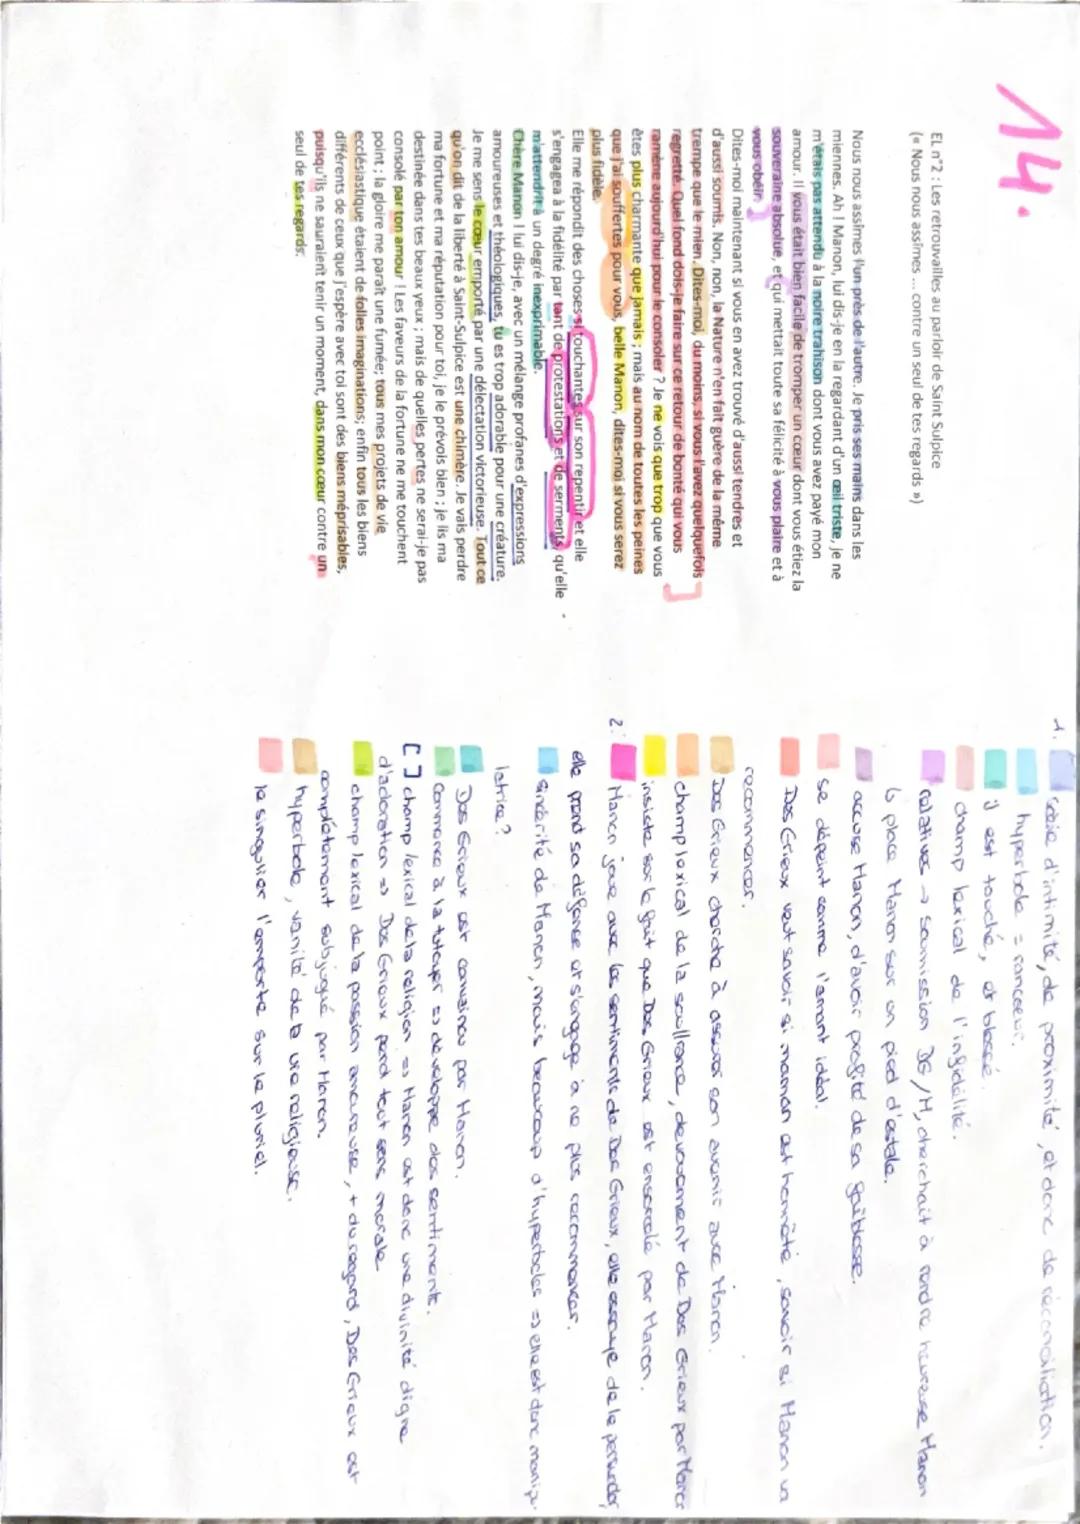 14.
EL n°2 : Les retrouvailles au parloir de Saint Sulpice
(« Nous nous assîmes ... contre un seul de tes regards »)
Nous nous assîmes l'un près de l'autre. Je pris ses mains dans les
miennes. Ah ! Manon, lui dis-je en la regardant d'un œil triste, je ne
m'étais pas attendu à la noire trahison dont vous avez payé mon
amour. Il vous était bien facile de tromper un cœur dont vous étiez la
souveraine absolue, et qui mettait toute sa félicité à vous plaire et à
vous obéir.
Dites-moi maintenant si vous en avez trouvé d'aussi tendres et
d'aussi soumis. Non, non, la Nature n'en fait guère de la même
trempe que le mien. Dites-moi, du moins, si vous l'avez quelquefois
regretté. Quel fond dois-je faire sur ce retour de bonté qui vous
ramène aujourd'hui pour le consoler ? Je ne vois que trop que vous
êtes plus charmante que jamais ; mais au nom de toutes les peines
que j'ai souffertes pour vous, belle Manon, dites-moi si vous serez
plus fidèle.
Elle me répondit des choses si touchantes sur son repentir et elle
s'engagea à la fidélité par tant de protestations et de serments, qu'elle
m'attendrit à un degré inexprimable.
Chère Manon ! lui dis-je, avec un mélange profanes d'expressions
amoureuses et théologiques, tu es trop adorable pour une créature.
Je me sens le cœur emporté par une délectation victorieuse. Tout ce
qu'on dit de la liberté à Saint-Sulpice est une chimère. Je vais perdre
ma fortune et ma réputation pour toi, je le prévois bien ; je lis ma
destinée dans tes beaux yeux ; mais de quelles pertes ne serai-je pas
consolé par ton amour ! Les faveurs de la fortune ne me touchent
point ; la gloire me paraît une fumée; tous mes projets de vie
ecclésiastique étaient de folles imaginations; enfin tous les biens
différents de ceux que j'espère avec toi sont des biens méprisables,
puisqu'ils ne sauraient tenir un moment, dans mon cœur contre un
seul de tes regards.
1. d'intimité, de proximité, et donc de réconciliation.
hyperbole = rancoeur.
il est touché, et blessé.
champ lexical de l'infidélité.
relatives → soumission DG/M, cherchait à rendre heureuse Manon
↳ place Manon sur un pied d'estale.
accuse Manon, d'avoir profité de sa faiblesse.
se dépeint comme l'amant idéal.
Des Grieux veut savoir si maman est honnête, savoir si Manon va
recommencer.
Des Grieux cherche à assurer son avenir avec Manon.
champ lexical de la souffrance, dévouement de Des Grieux par Manon
insiste sur le fait que Des Grieux est ensorcelé par Manon.
2. Manon joue avec les sentiments de Des Grieux, elle essaye de le persuader,
elle prend sa défense et s'engage à ne plus recommencer.
sincérité de Manon, mais beaucoup d'hyperboles => elle est donc manipu-
latrice?
Des Grieux est convaincu par Manon.
commence à la tutoyer => développe des sentiments.
[ ] champ lexical de la religion => Manon est donc une divinité digne
d'adoration => Des Grieux perd tout sens morale
champ lexical de la passion amoureuse, + du regard, Des Grieux est
complètement subjugué par Manon.
hyperbole, vanité de la vie religieuse.
le singulier l'emporte sur le pluriel.